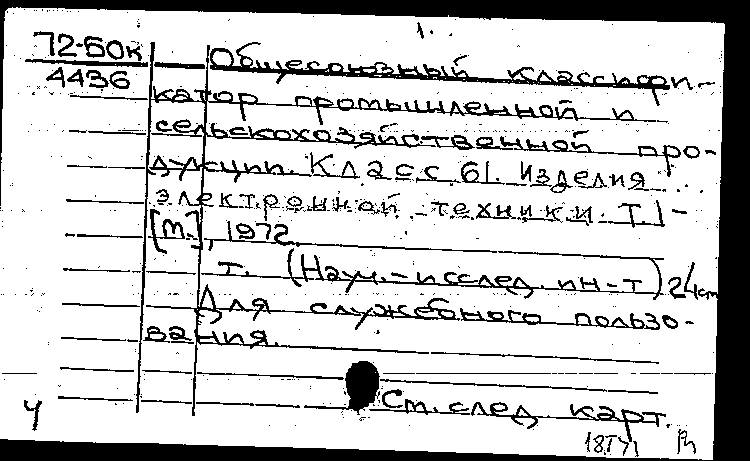 1.
72-БОК
4436
Общесоюзный классифи-
катор промышленной и
сельскохозяйственной про-
дукции. Класс 61. Изделия ...
электронной техники. Т 1-
[М.], 1972.
т. (Науч.-исслед. ин-т) 24 cm
Для служебного пользо-
вания.
См. след. карт.